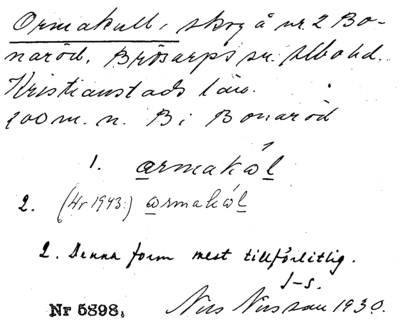 Ormakull, skog å nr. 2 Bo-
naröd, Brösarps sn. Albo hd.
Kristianstads län.
200 m. n. B i Bonaröd
1. armakəl
2. (Hr 1943:) armakəl
2. Denna form mest tillförlitlig.
J-s.
Nr 5898. Nils Nilsson 1930.